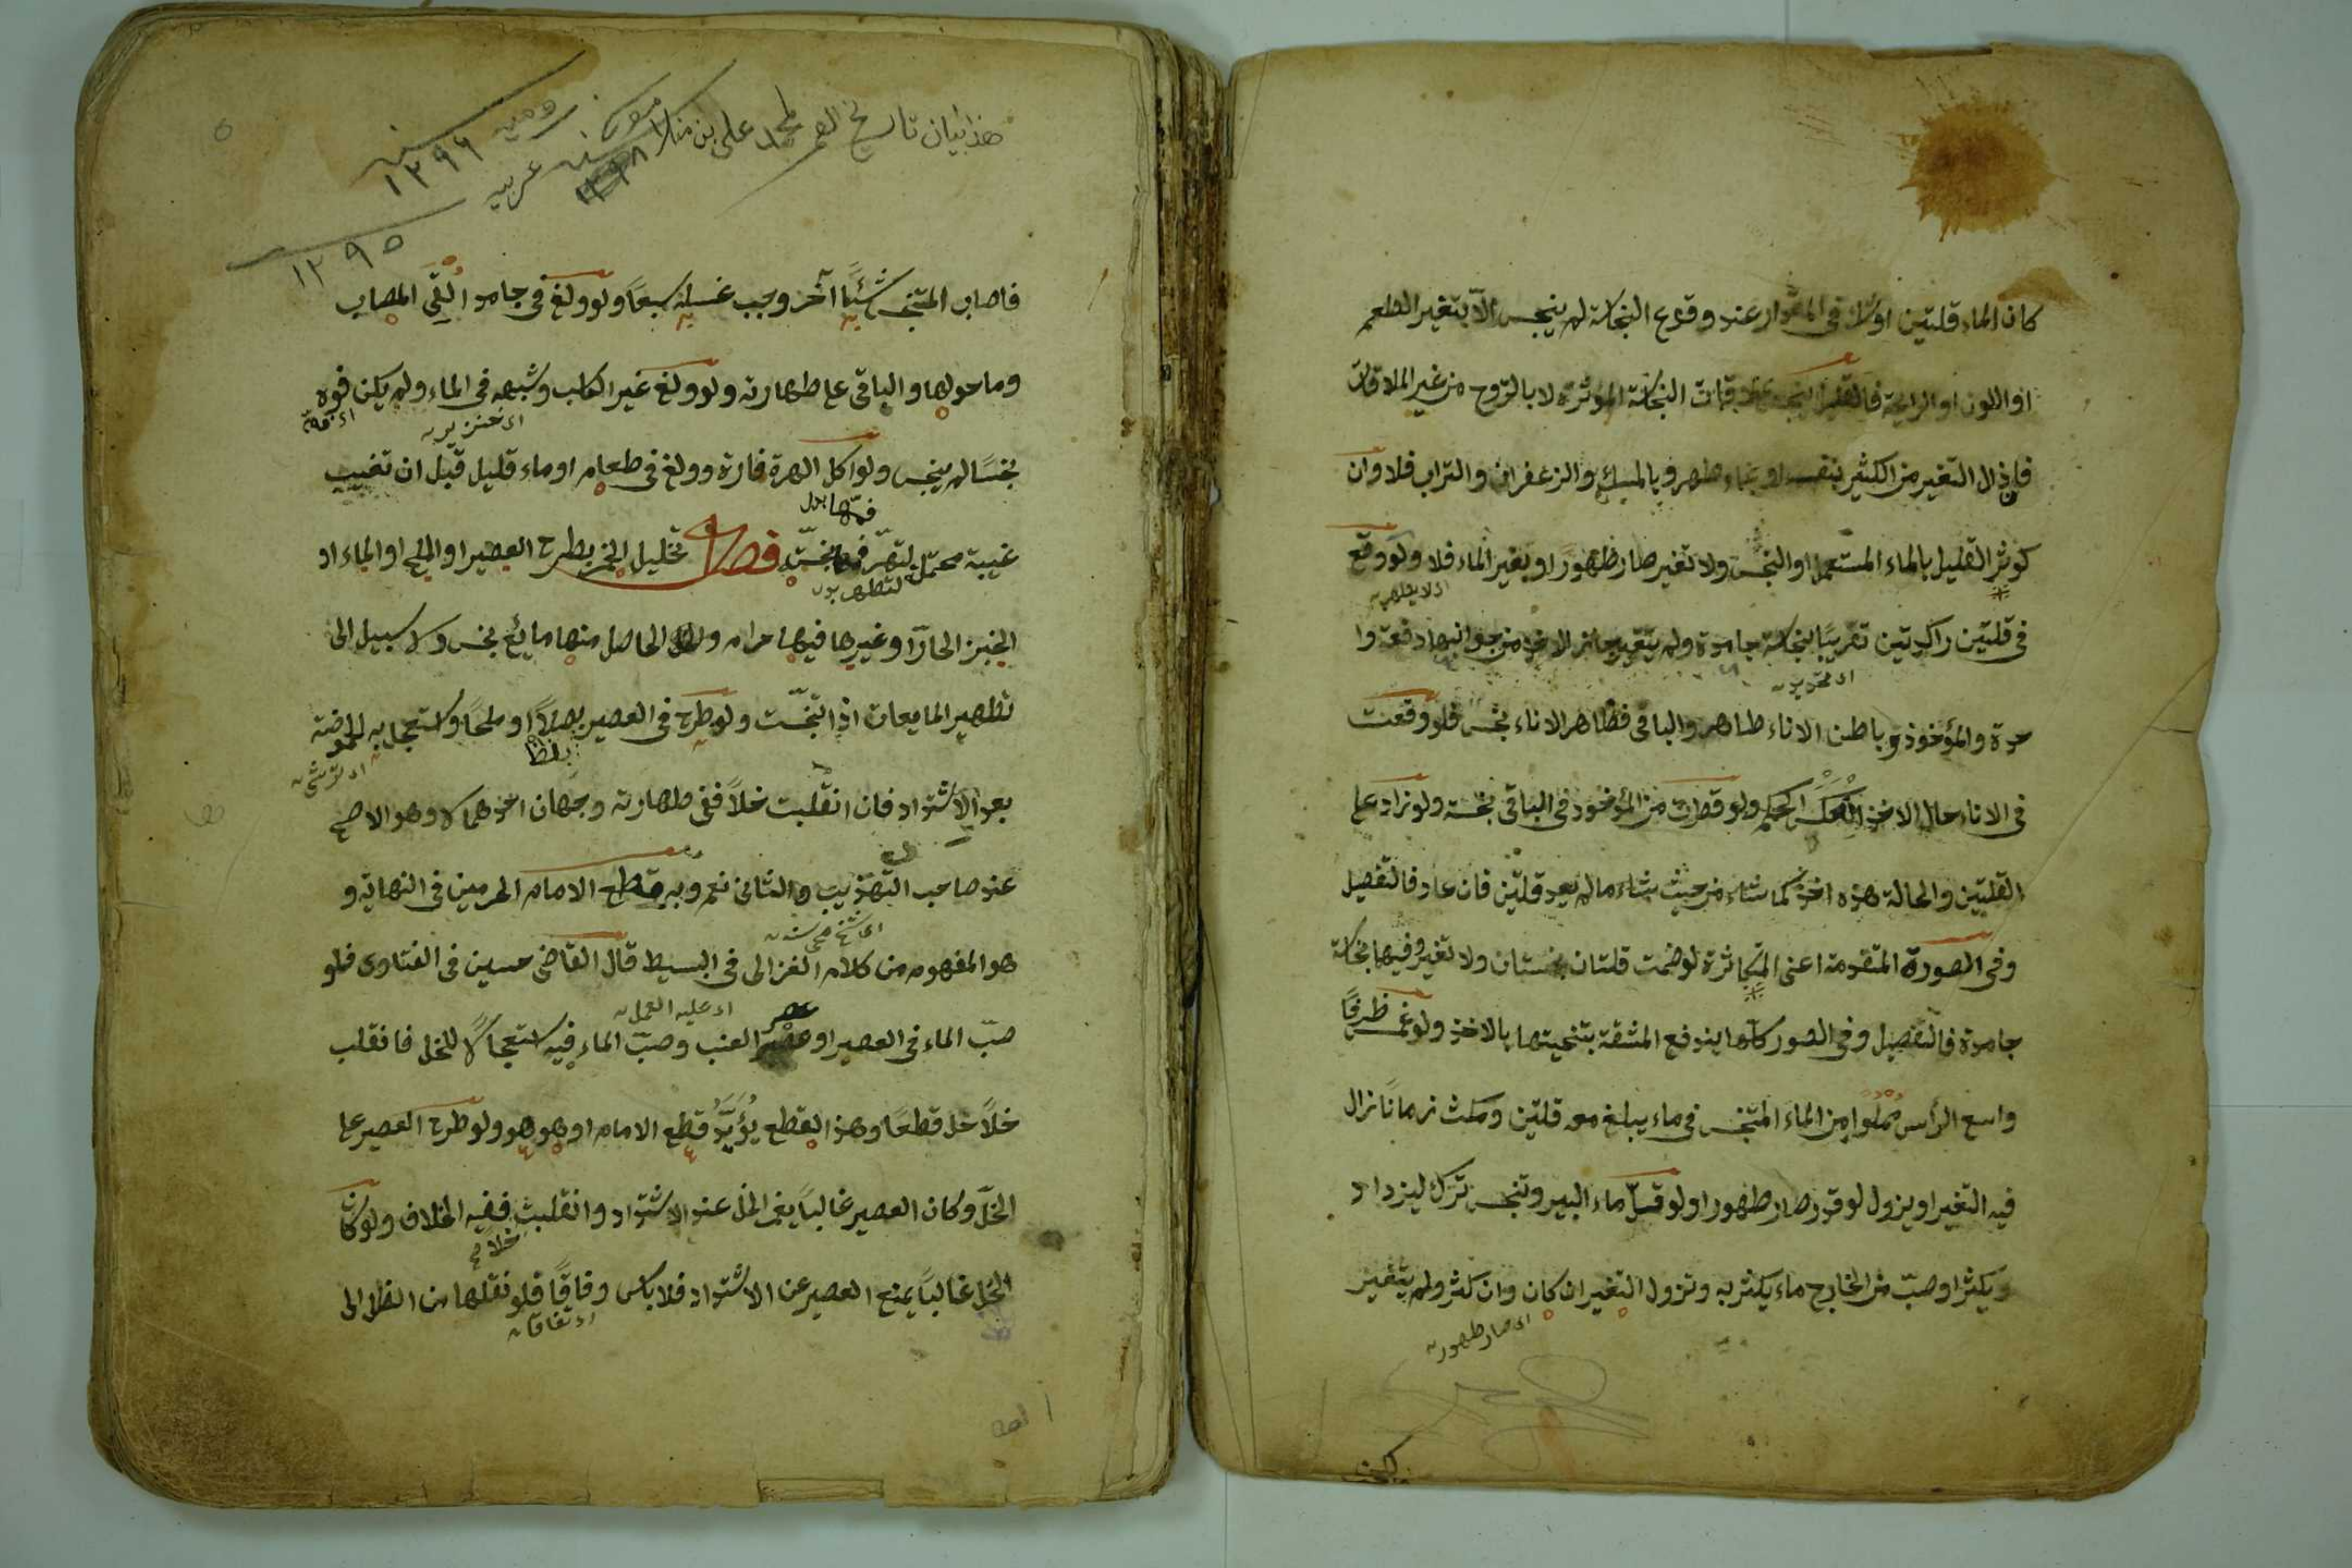 كان الماء قلتين او شك فى المقدار عند وقوع النجاسة لم ينجس الّا بتغير الطعم
او اللون او الرايحة فالقليل ينجس بملاقات النجاسة المؤثرة لا بالتروح من غير الملاقات
فان زال التغير من الكثير بنفسه او بماء طهر وبالمسك والزعفران والتراب فلا وان
كوثر القليل بالماء المستعمل او النجس ولا تغير صار طهورًا او بغير الماء فلا ولو وقع
اى لا يطهر
فى قلتين راكدتين تقريبًا نجاسة جامدة ولم يتغير جاز الاخذ من جوانبها دفعة وا
حدة والمؤخوذ وباطن الاناء طاهر والباقى فظاهر الاناء نجس فلو وقعت
فى الاناء حال الاخذ انعكس الحكم ولو قطرت من المؤخوذ فى الباقى نجسه ولو زاد على
القلتين والحالة هذه اخذ كما شاء من حيث شاء ما لم يعد قلتين فان عاد فالتفصيل
وفى الصورة المتقدمة اعنى المكاثرة لو ضمت قلتان نجستان ولا تغير وفيها نجاسة
جامدة فالتفصيل وفى الصور كلّها يندفع المشقة بتنحيتها بالاخذ ولو غمس ظرفًا
واسع الرأس مملوا من الماء المتنجس فى ماء يبلغ معه قلتين ومكث زمانًا زال
فيه التغير او يزول لو قدر صار طهورا ولو قلّ ماء البير وتنجس ترك ليزداد
ويكثر او صبّ من الخارج ماء يكثر به وتزول التغير ان كان وان كثر ولم يتغير
اى صار طهور
هذا بيان تاريخ العمر لمحمد على بن ملا
سنه ١٢٩٦ روميه
سنه عربيه
١٢٩٥
فاصاب المتنجس شيئًا آخر وجب غسله سبعًا ولو ولغ فى جامد اُلقِى المصاب
وما حولها والباقى على طهارته ولو ولغ غير الكلب وشبهه فى الماء ولم يكن فوه
اى خنزير
اى فمه
نجسًا لم ينجس ولو اكل الهرة فارة وولغ فى طعام او ماء قليل قبل ان تغيب
فمها
غيبة محتمل لتطهر فمها نجس فصل تخليل الخمر بطرح العصير او الملح او الماء او
الخبز الحارّ او غيرها فيها حرام والخل الحاصل منها مائع نجس ولا سبيل الى
تطهير المايعات اذا تنجّست ولو طرح فى العصير بصلًا او ملحًا واستعجل به الحموضة
اى ترشى
بعد الاشتداد فان انقلبت خلاً ففى طهارته وجهان احدهما لا وهو الاصح
عند صاحب التهذيب والثانى نعم وبه قطع الامام الحرمين فى النهاية و
هو المفهوم من كلام الغزالى فى البسيط قال القاضى حسين فى الفتاوى فلو
اى عليه العمل
عصر
صبّ الماء فى العصير او عصر العنب وصبّ الماء فيه استعجالًا للخل فانقلب
خلاً حل قطعًا وهذا القطع يُؤَيِّدُ قطع الامام او هو هو ولو طرح العصير على
الخلّ وكان العصير غالباً يغمر الخل عند الاشتداد وانقلبت ففيه الخلاف ولو كان
الخل غالباً يمنع العصير عن الاشتداد فلا باس وفاقًا فلو نقلها من الظل الى
اى اتفاقا